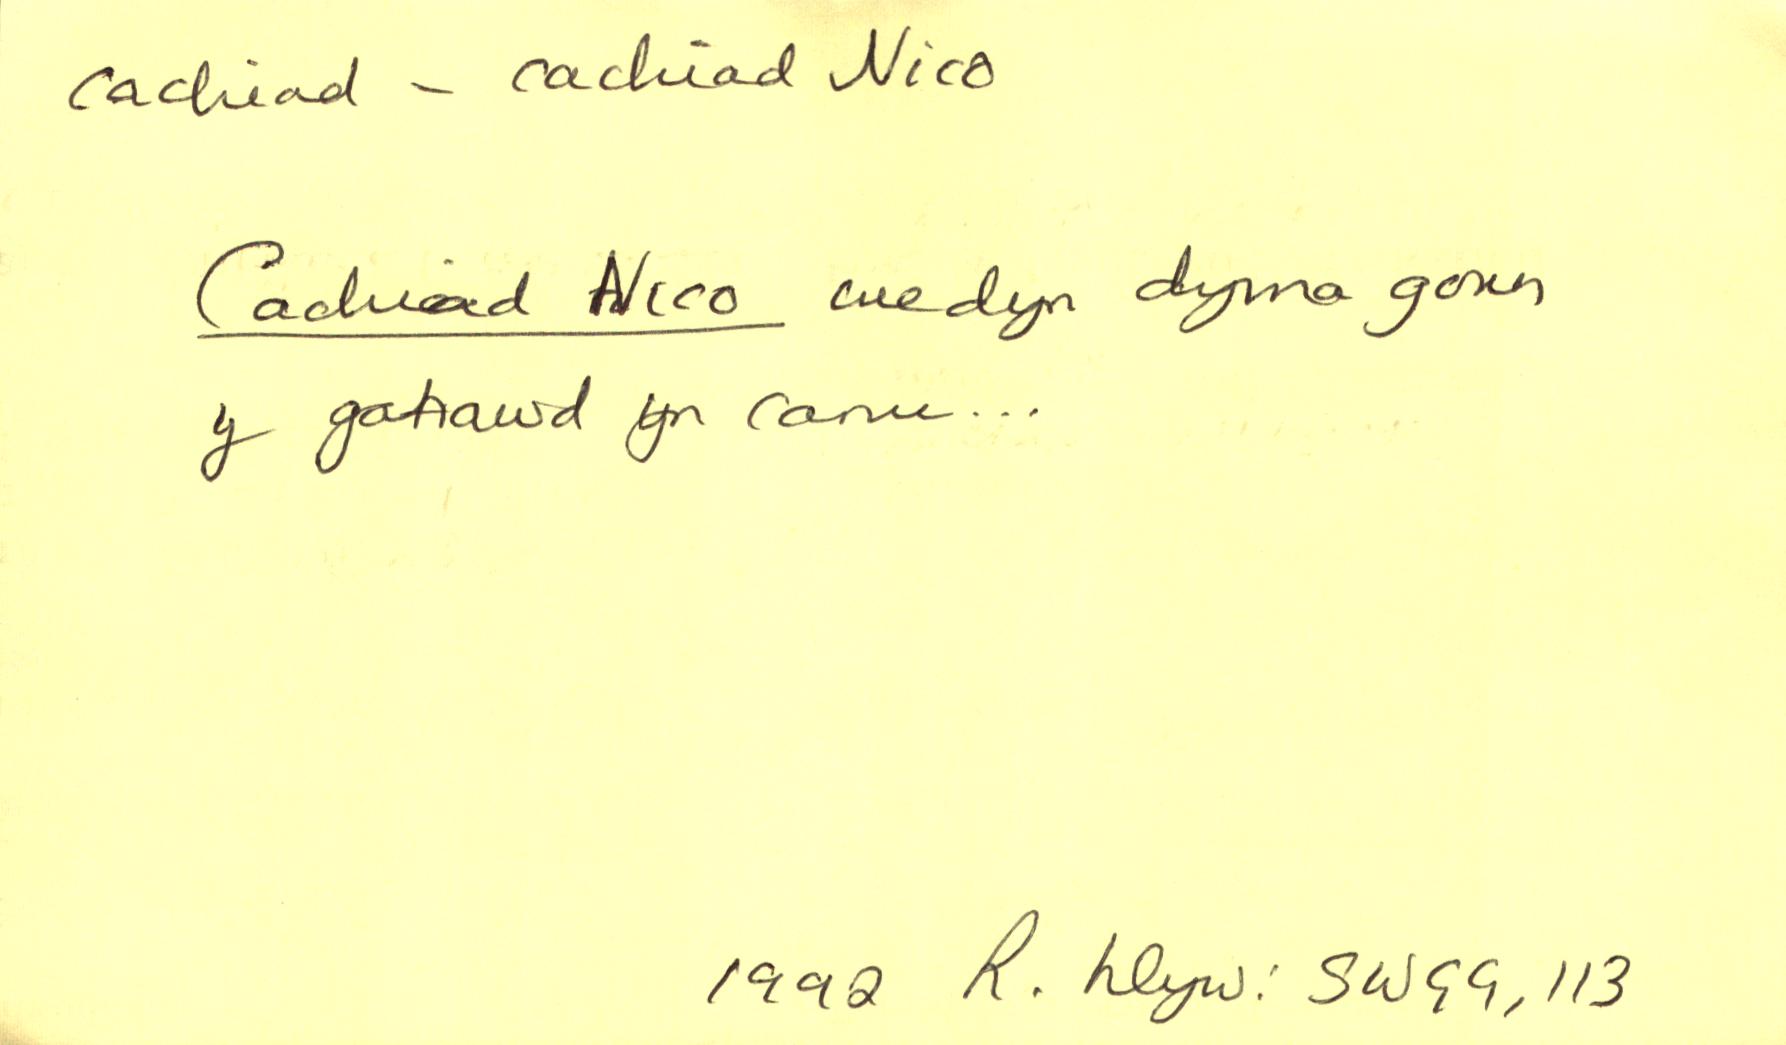 cachiad – cachiad Nico
Cachiad Nico wedyn dyma gorn
y gatrawd yn canu...
1992 R. Llyw: SWGG, 113